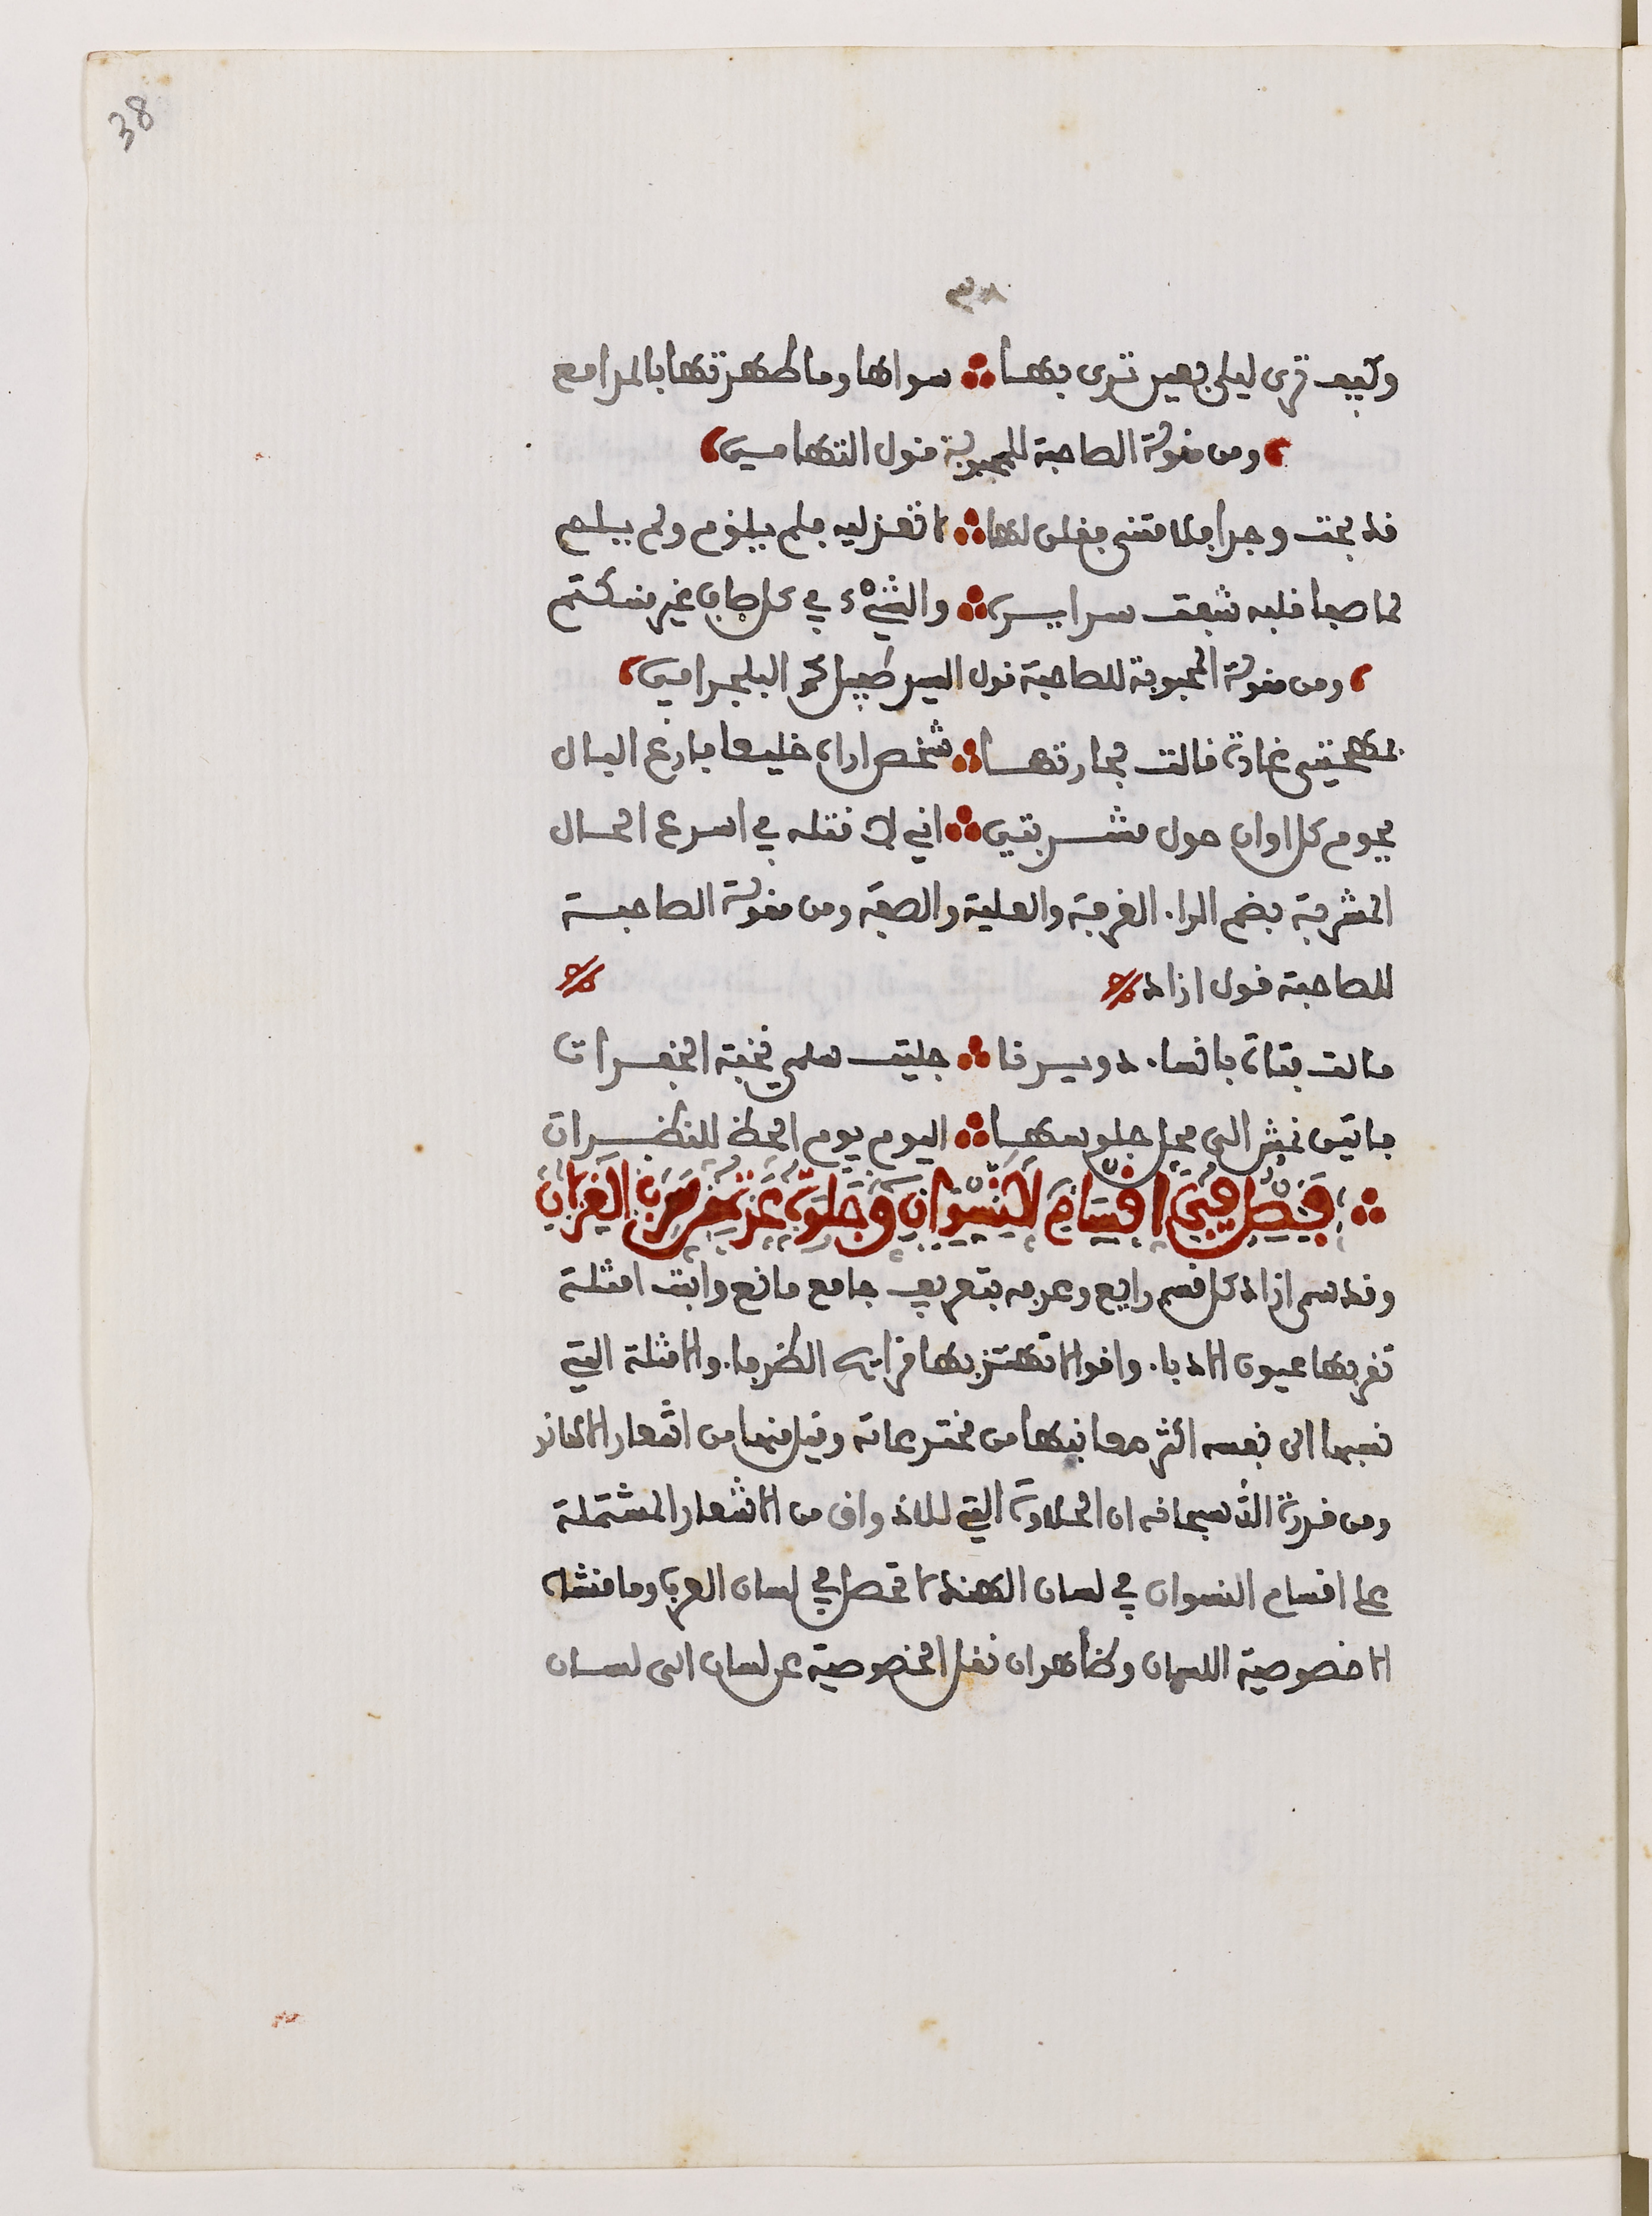 38
٣٨
وكيف ترى ليلى بعين ترى بها ∴ سواها وما طهرتها بالمدامع
ومن مقولة الصاحبة للمحبوبة قول التهامي
قد بحت وجدا فلامتني فقلن لها ∴ لا تعذليه فلم يلؤم ولم يلم
لما صفا قلبه شفت سرايره ∴ والشيء في كل صاف غير منكتم
ومن مقولة المحبوبة للصاحبة قول السيد طفيل محمد البلجرامي
غادة قالت لجارتها ∴ شخص اراه خليعا فارغ البال
يحوم كل اوان حول مشربتي ∴ اني لا قتله في اسرع الحال
المشربة بضم الراء الغرفة والعلية والصفة ومن مقولة الصاحبة
للصاحبة قول ازاد
قالت فتاة بالنساء دويرنا ∴ جليت سلمى نخبة الخفرات
فاتين نمش الى محل جلوسها ∴ اليوم يوم الحظ للنظرات
∴ فصل في اقسام النسوان وجلوة عز الغزلان
وقد سمى ازاد كل قسم رايع وعرفه بتعريف جامع مانع واتت امثلة
تقر بها عيون الادباء واقوالا تهتز بها قرايح الظرفاء والامثلة التي
نسبها الى نفسه اكثر معانيها من مخترعاته وقيل منها من اشعار الاهاند
ومن قدرة الله سبحانه ان الحلاوة التي للاذواق من الاشعار المشتملة
على اقسام النسوان في لسان الهند لا تحصل في لسان العرب وما منشاه
الا خصوصية اللسان وظاهر ان نقل الخصوصية عن لسان الى لسان